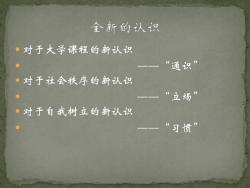 全新的认识
对于大学课程的新认识
——“通识”
对于社会秩序的新认识
——“立场”
对于自我树立的新认识
——“习惯”